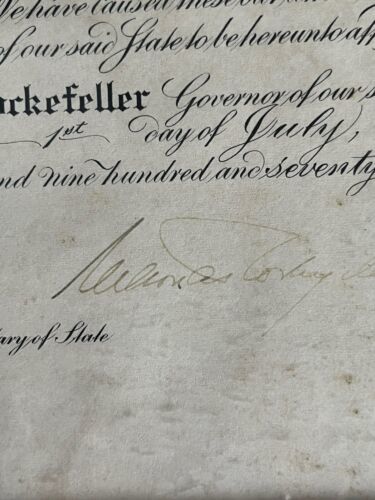 We have caused these our
of our said State to be hereunto af
ckefeller Governor of our s
1st day of July,
nd nine hundred and seventy
ary of State